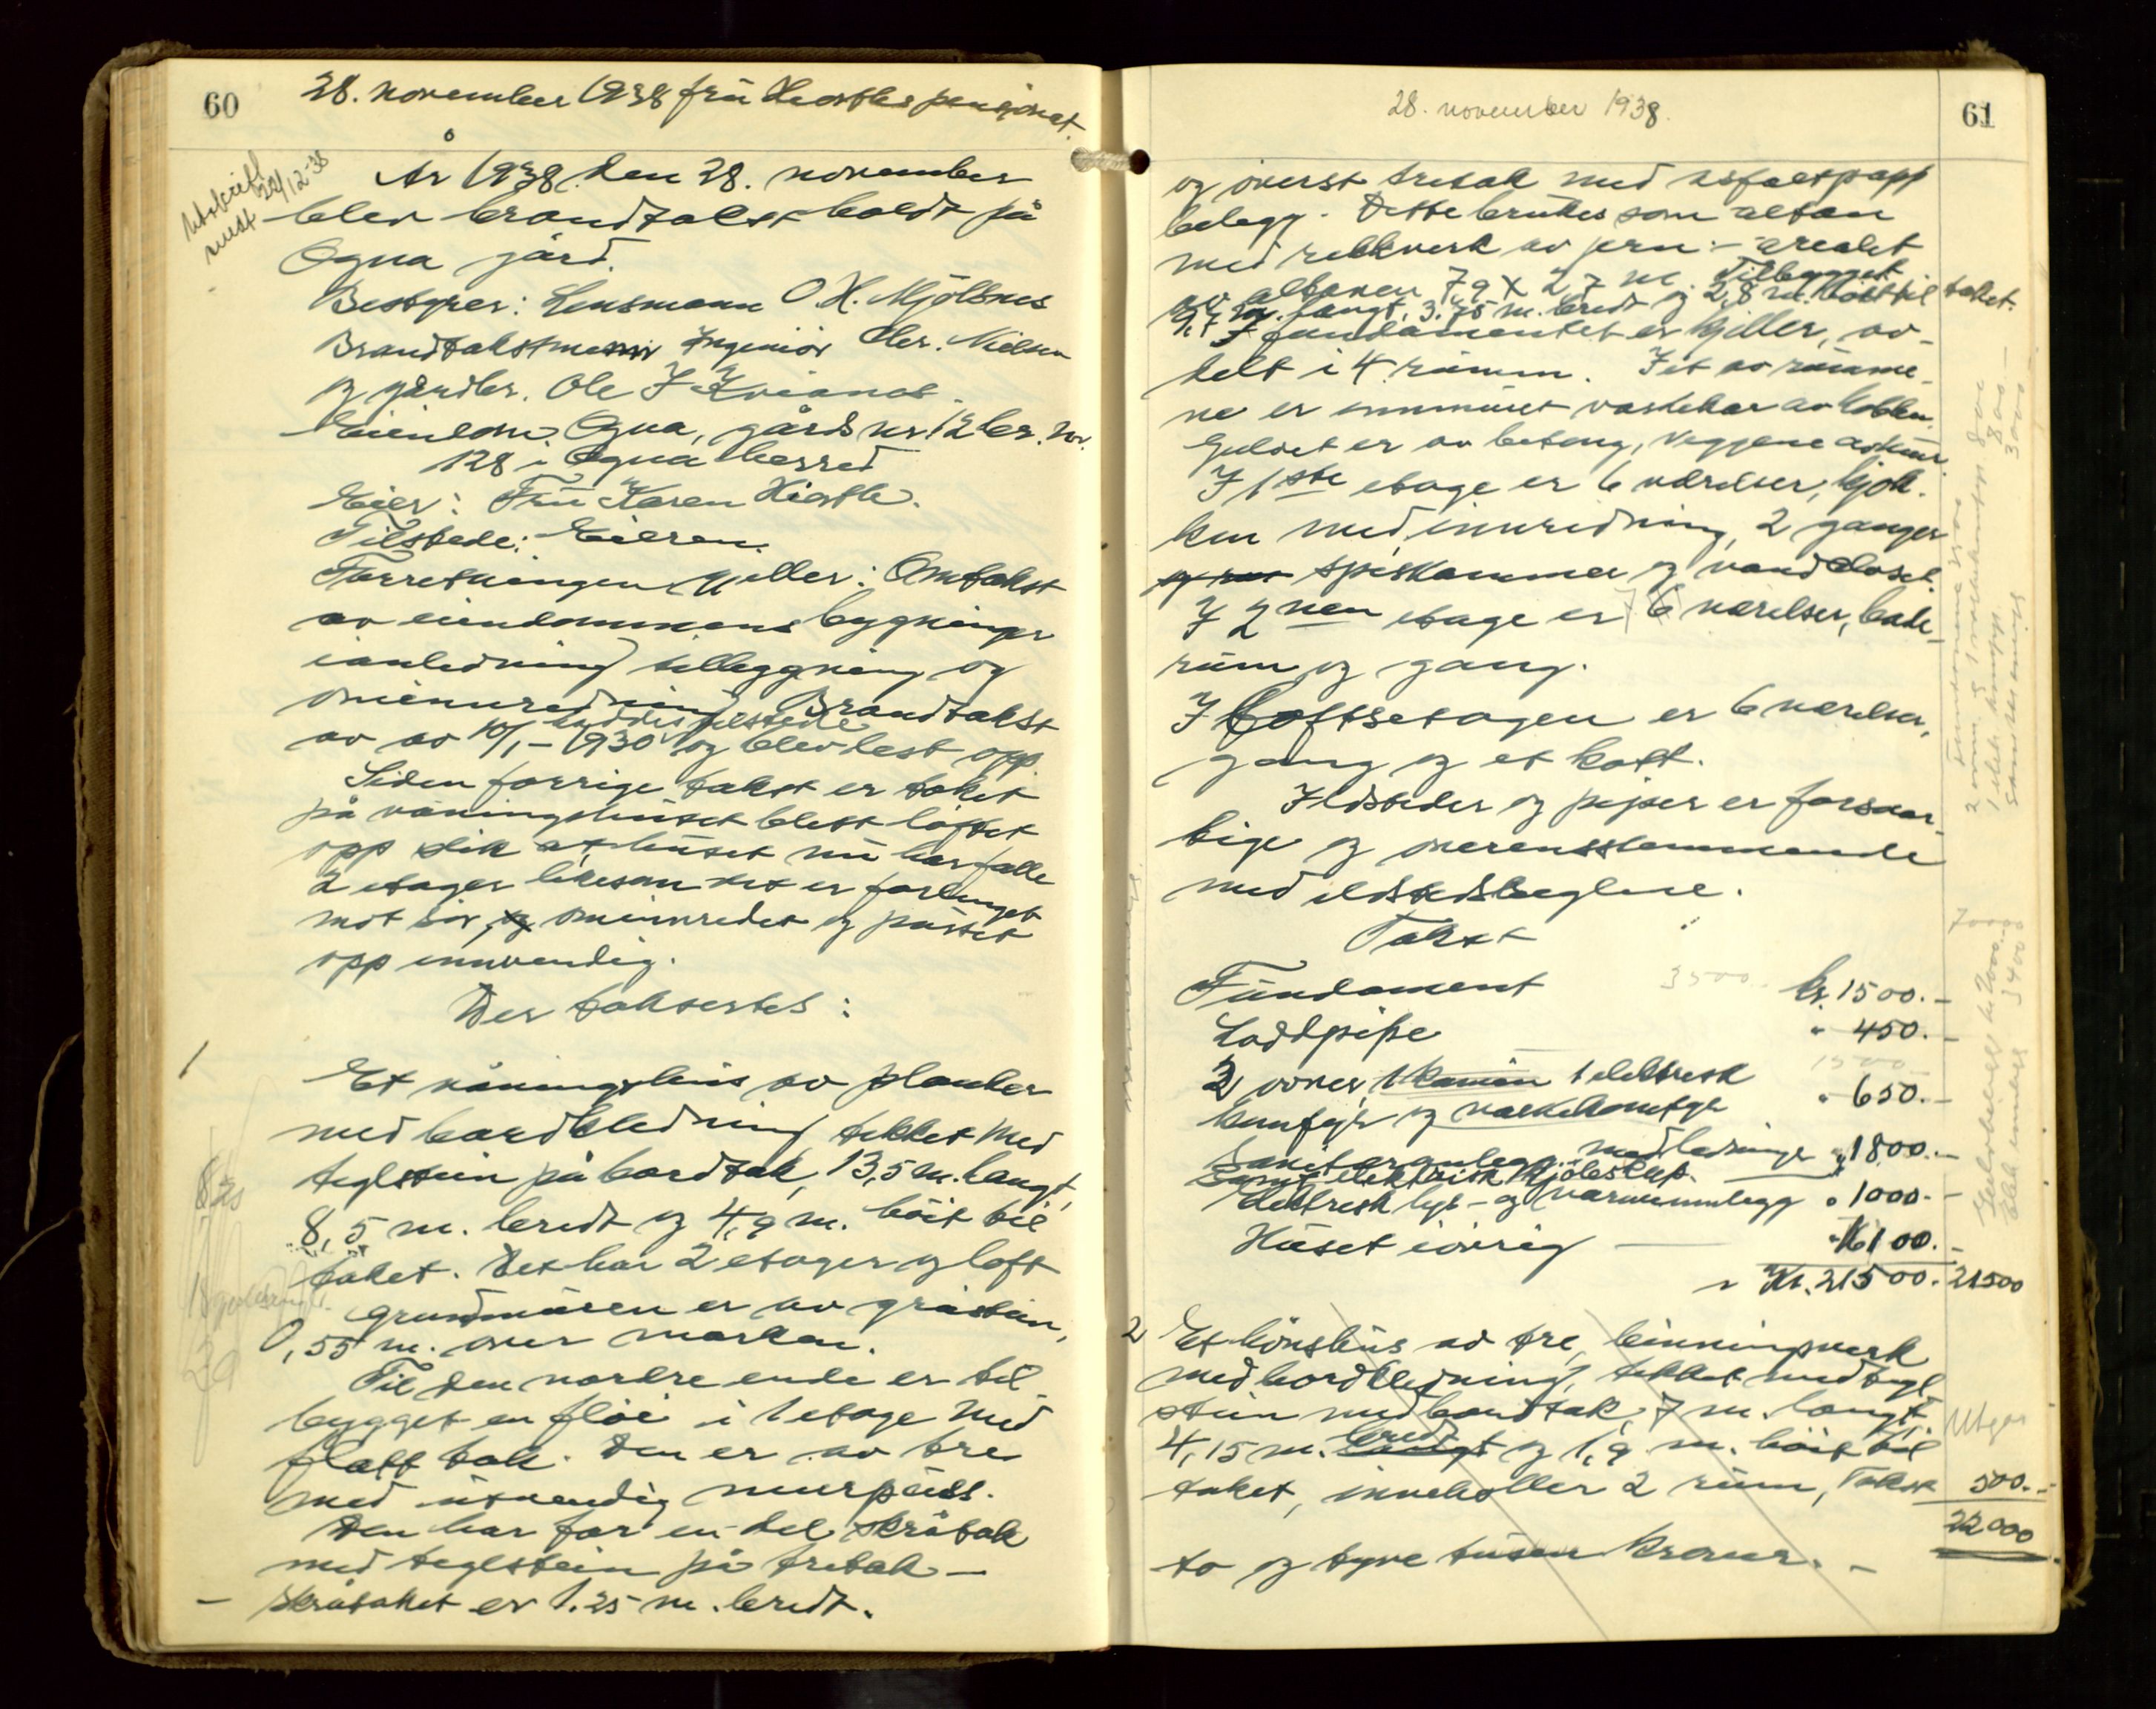 60
28. november 1938 frü Hiorths pensjonat.
Utskrift
sendt 29/12-38
År 1938 den 28. november
blev brandtakst holdt på
Ogna gård.
Bestyrer: Lensmann O. H. Mjölsnes
Brandtakstmenn Ingeniör Chr. Nielsen
og gårdbr. Ole J. Kvianes.
Eiendom: Ogna, gårds nr 12 br. nr.
128 i Ogna herred
Eier: Frü Karen Hiorth.
Tilstede: Eieren.
Forretningen gjeller: Omtakst
av eiendommens bygninger
i anledning tilleggning og
ominnredning Brandtakst
haddes tilstede
av av 10/1-1930 og blev lest opp.
Siden forrige takst er taket
på våningshüset blett löftet
opp slik at hüset nü har fulle
2 etager likesom det er forlenget
mot sör, og ominnredet og püsset
opp innvendig.
Der taksertes:
1
Et våningshüs av planker
med bordkledning tekket med
teglstein på bordtak, 13,5 m. langt,
8,5 m. bredt og 4,9 m. höit til
taket. Det har 2 etager og loft
grundmüren er av gråstein,
0,55 m. over marken.
Til den nordre ende er til
bygget en flöi i 1 etage med
flatt tak. Den er av tre
med ütvendig mürpüss.
Den har for en del skråtak
med teglstein på tretak –
– skråtaket er 1.25 m. bredt.
61
28. november 1938.
og överst tretak med asfaltpapp
belegg. Dette brükes som altan
med rekkverk av jern – arealet
av altanen 7.9 x 2,7 m. Tilbygget
9,7 m. langt, 3.75 m. bredt og 2,8 m. höit til taket.
I fundamentet er kjeller, av-
delt i 4 rümm. I et av rümme-
ne er innmüret vaskekar av kobber.
Gulvet er av betong, veggene av mür.
I 1ste etage er 6 værelser, kjök-
ken med innredning, 2 ganger
spiskammer og vandcloset.
I 2nen etage er 7 6 værelser, bade-
rüm og gang.
I Loftsetagen er 6 værelser,
gang og et loft.
Ildsteder og piper er forsvar-
lige og overensstemmende
med ildstedsreglene.
Takst
Fündament 3500. kr. 1500.–
Loddpipe " 450.–
2 ovner, 1 kamin 1 elektrisk
komfyr og vaskekomfyr " 650.–
Sanitæranlegg med ledninger " 1800.–
Samt elektrisk kjöleskap.
Elektrisk lys- og varmeinnlegg " 1000.–
Hüset iövrig " 16100.–
Kr. 21500. 21500
2
Et hönshüs av tre, binningsverk
med bordkledning, tekket med tegl-
stein med bordtak, 7 m. langt,
4,15 m. langt bredt og 1,9 m. höit til
taket, inneholler 2 rüm, Takst 500.–
Utgår
22000
to og tyve tüsen kroner. –